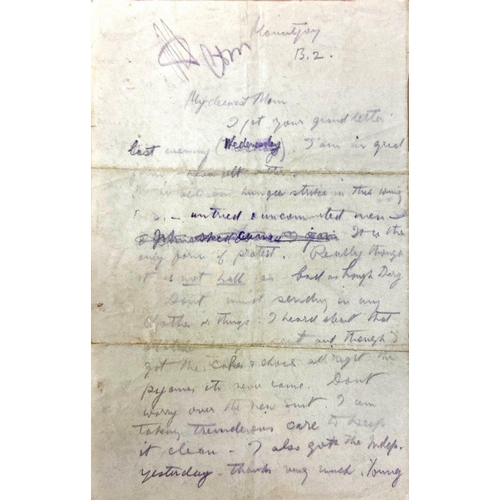 Mountjoy
B.2.
My dearest Mom
I got your grand letter
last evening (Wednesday). I am in great
hunger strike in this wing
- untried & unconvicted men -
It is the
only form of protest. Really though
it is not half as bad as Lough Derg
Don't mind sending in any
clothes or things I heard about that
and though I
got the cakes & chocs all right the
pyjamas etc never came. Don't
worry over the new suit I am
taking tremendous care to keep
it clean - I also got the Indep.
yesterday - thanks very much. Young